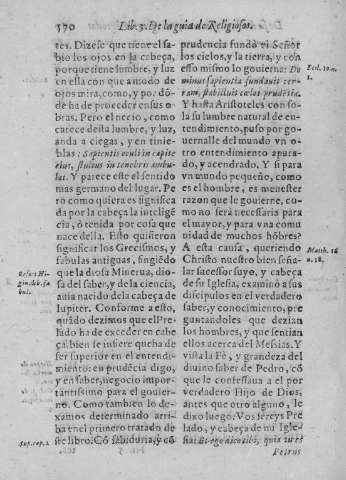 370 Lib. 3. De la guia de Religiosos.
tes. Dizese que tiene el sa-
bio los ojos en la cabeça,
porque tiene lumbre, y luz
en ella con que a modo de
ojos mira, como, y por dó-
de ha de proceder en sus o-
bras. Pero el necio, como
carece desta lumbre, y luz,
anda a ciegas, y en tinie-
blas: Sapientis oculi in capite
eius, stultus in tenebris ambu-
lat. Y parece este el sentido
mas germano del lugar. Pe
ro como quiera es significa
da por la cabeça la inteligẽ
cia, ò tenida por cosa que
nace della. Esto quisieron
significar los Grecismos, y
fabulas antiguas, fingiẽdo
que la diosa Minerua, dio-
sa del saber, y de la ciencia,
auia nacido dela cabeça de
Iupiter. Conforme a esto,
quãdo dezimos que el Pre-
lado ha de exceder en cabe
ça, bien se infiere que ha de
ser superior en el entendi-
miento: en prudẽcia digo,
y en saber, negocio impor-
tantissimo para el gouier-
no. Como tambien lo de-
xamos determinado arri-
ba en el primero tratado de
ste libro. Cõ sabiduria, y cõ
Refert Hi-
gin. lib. fa
bul.
Sup. cap. 2
prudencia fundò el Señor
los cielos, y la tierra, y con
esso mismo lo gouierna: Do
minus sapientia fundauit ter-
ram, stabiliuit cœlos prudẽtia.
Y hasta Aristoteles con so-
la su lumbre natural de en-
tendimiento, puso por go-
uernalle del mundo vn o-
tro entendimiento apura-
do, y acendrado. Y si para
vn mundo pequeño, como
es el hombre, es menester
razon que le gouierne, co-
mo no será necessaria para
el mayor, y para vna comu
nidad de muchos hõbres?
A esta causa, queriendo
Christo nuestro bien seña-
lar successor suyo, y cabeça
de su Iglesia, examinò a sus
discipulos en el verdadero
saber, y conocimiento, pre
guntandoles que dezian
los hombres, y que sentian
ellos acerca del Messias. Y
vista la Fè, y grandeza del
diuino saber de Pedro, cõ
que le confessaua a el por
verdadero Hijo de Dios,
antes que otro alguno, le
dixo luego: Vos sereys Pre
lado, y cabeça de mi Igle-
sia: Et ego dico tibi, quia tu es
Petrus
Matth. 16
n. 18.